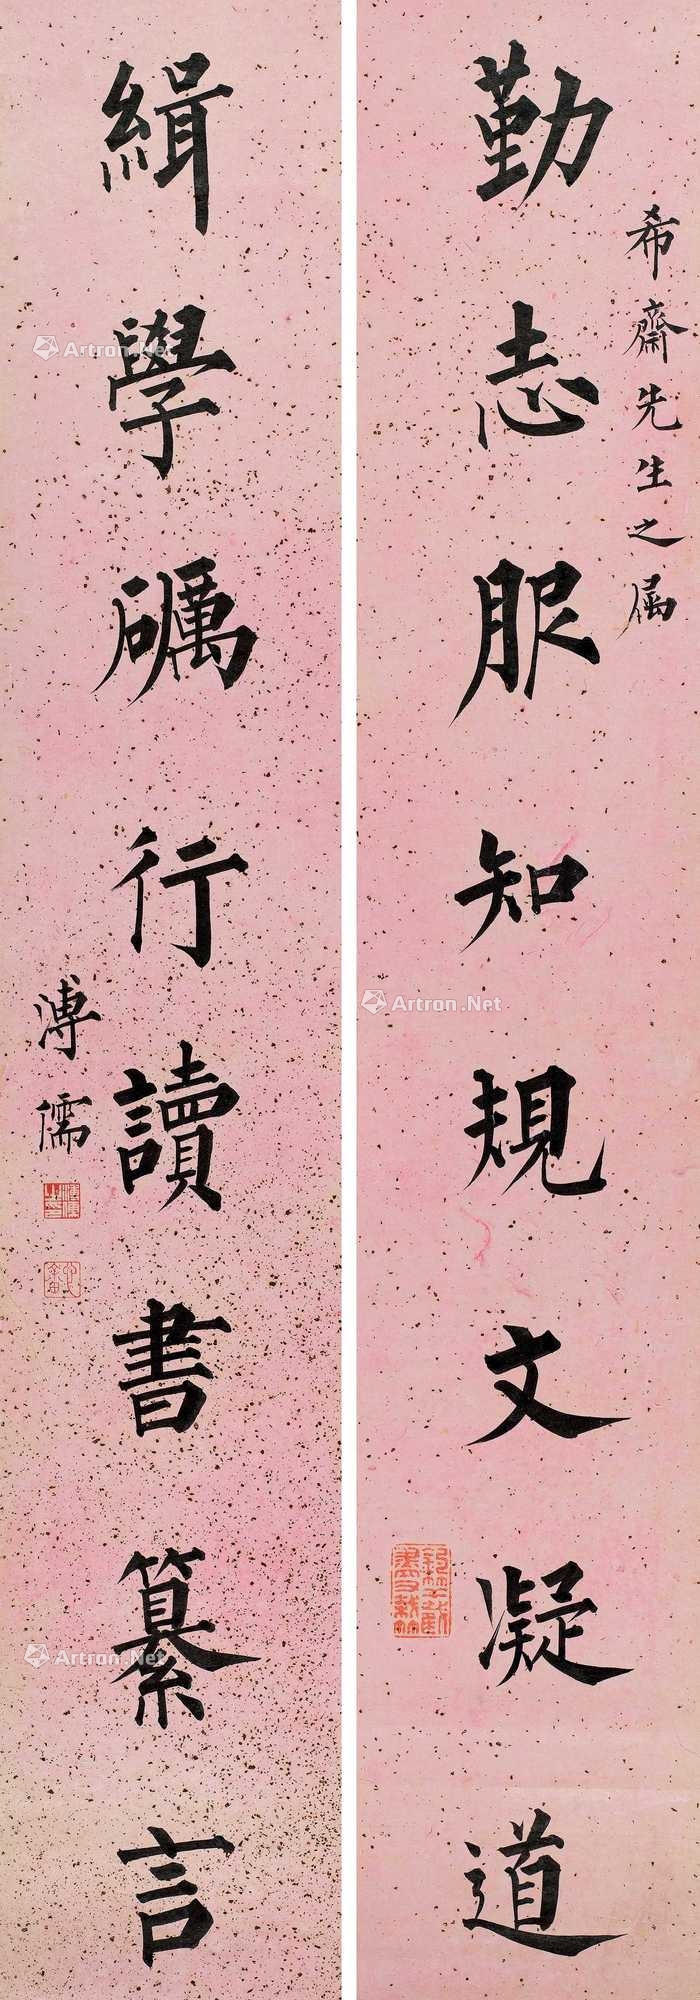 希齋先生之属
勤志服知規文凝道
緝學礪行讀書纂言
溥儒
Artron.Net
Artron.Net
Artron.Net